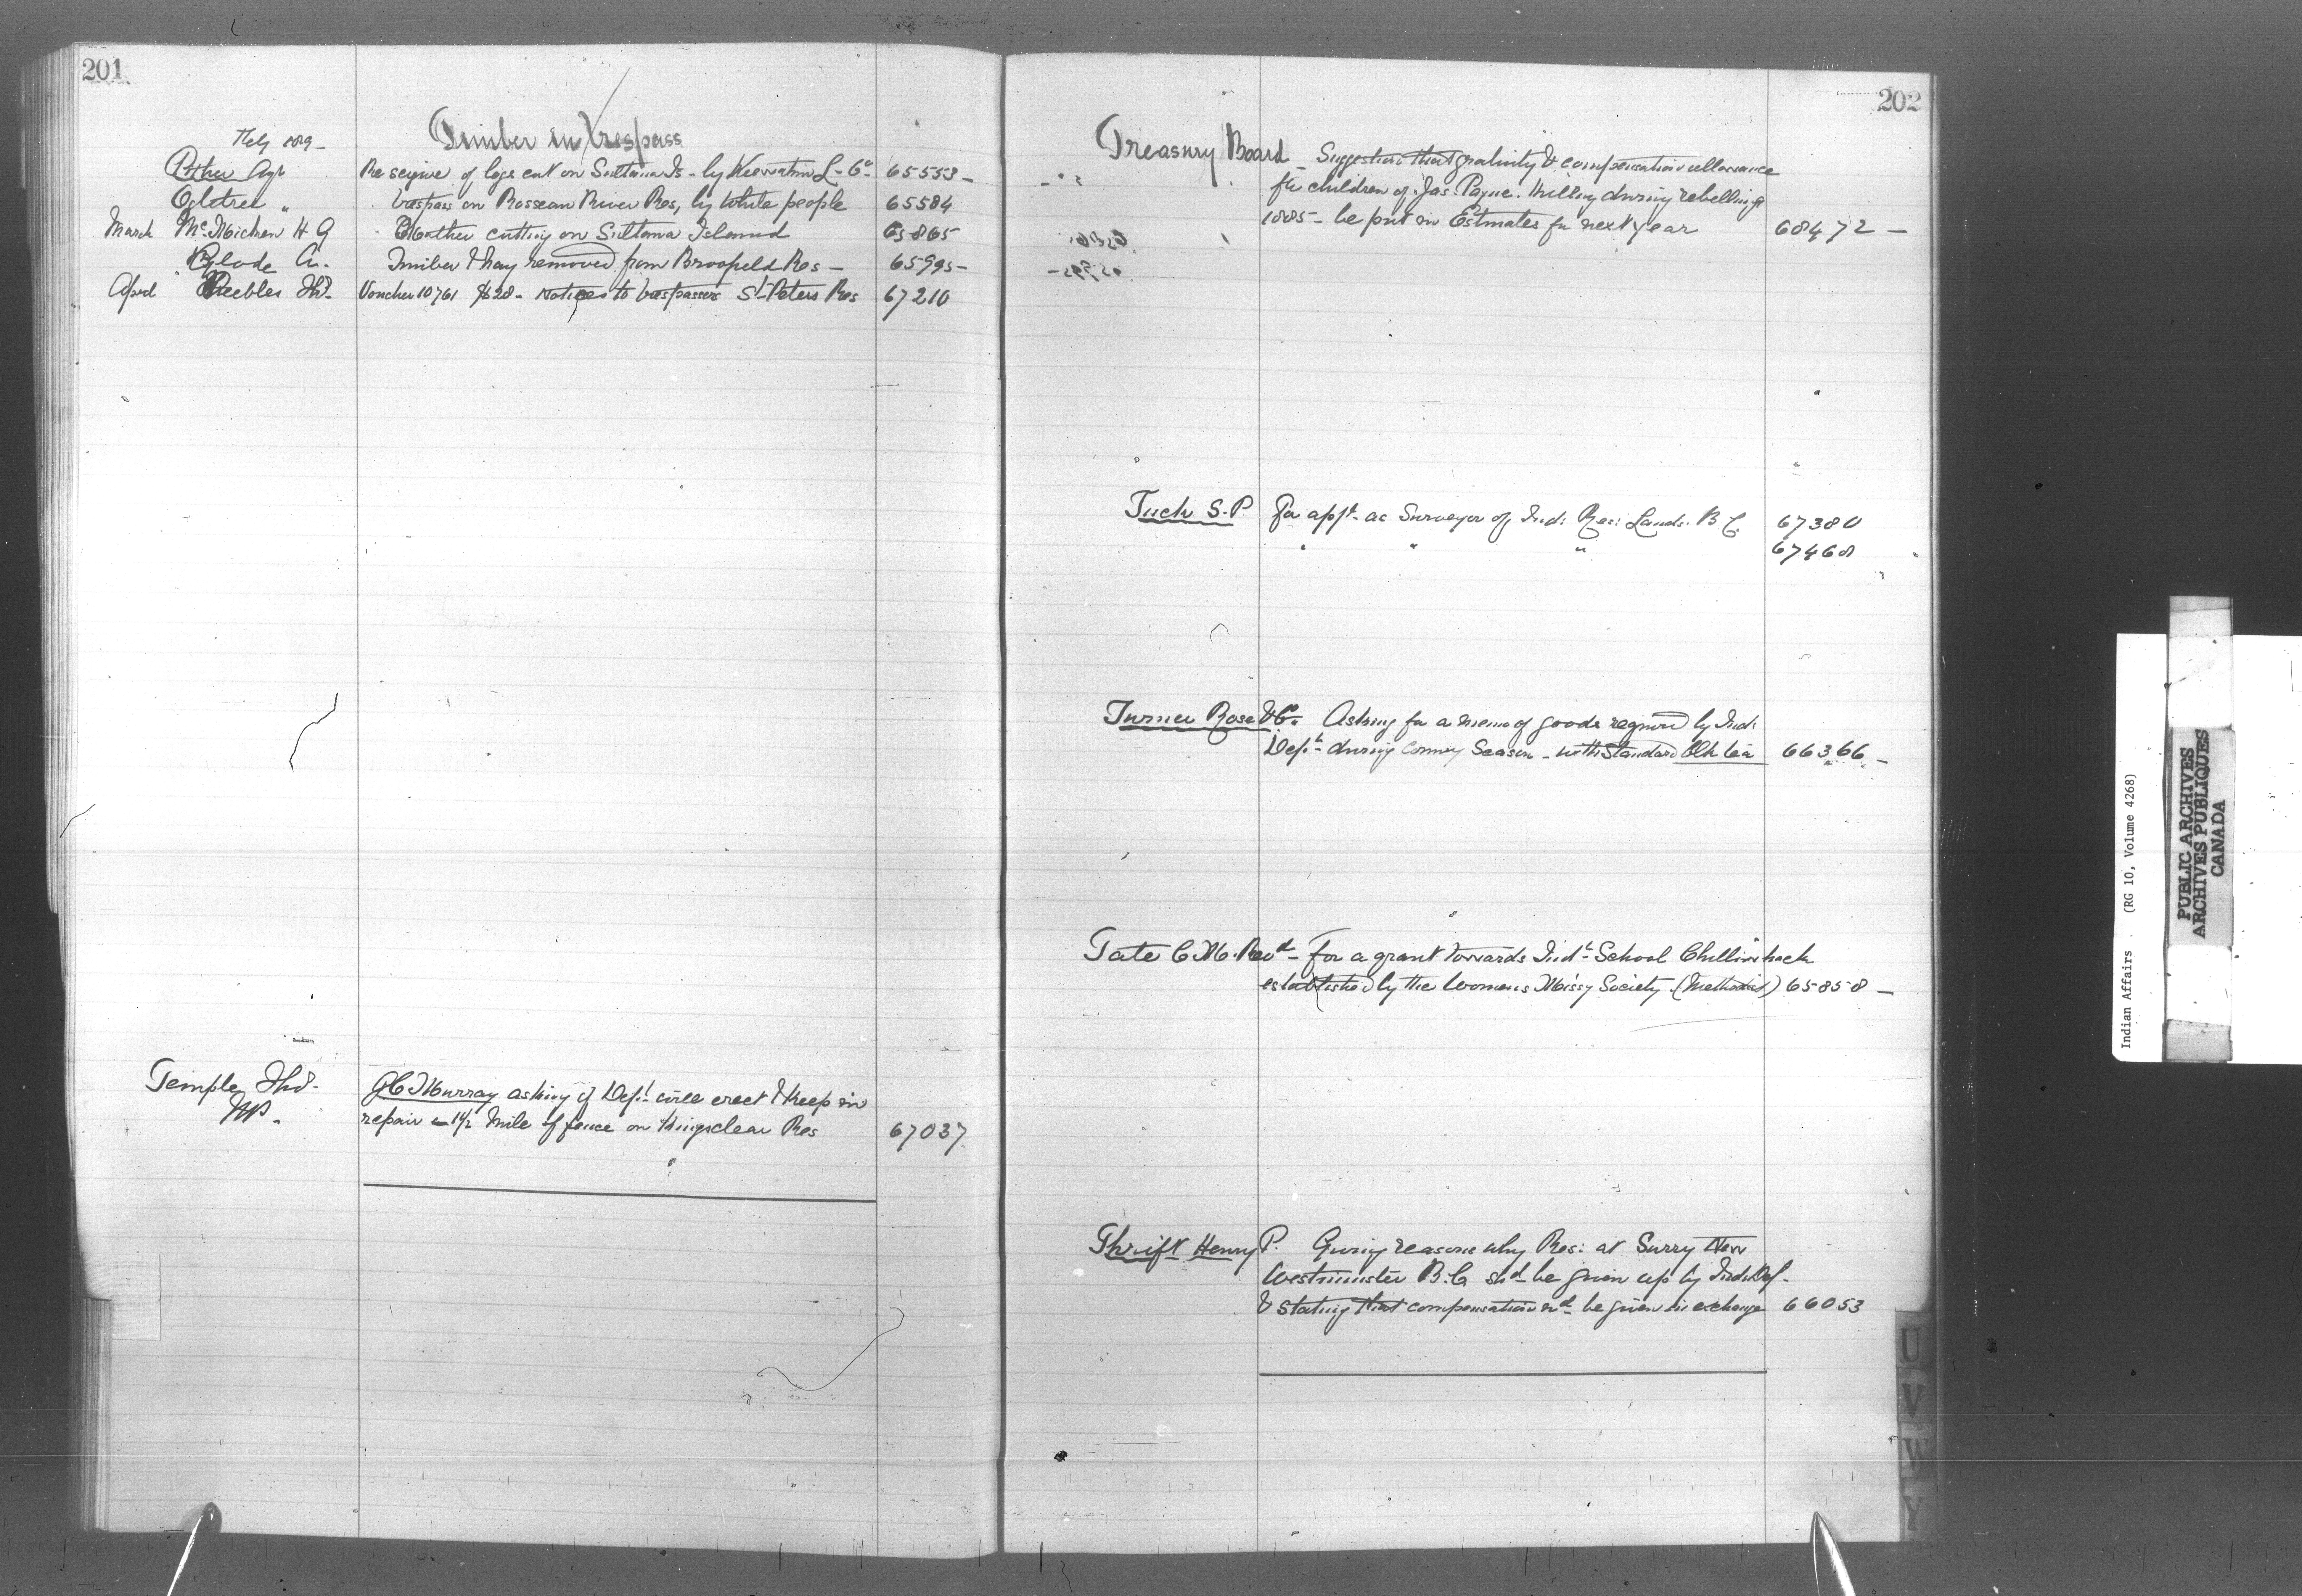 201
Timber in Trespass
Feby 1889 -
Pither Agt Re seizure of logs cut on Sultana Is - by Keewatin L - Co - 65553 -
Ogletree " " trespass on Rosseau River Res, by White people 65584
March McMicken H G " cutting on Sultana Island 65865
Glode Timber & hay removed from Broofield Res - 65995 -
April Peebles Thos. Voucher 10761 $28 - notices to trespassers St Peters Res 67210
Temple Thos. J C Murray asking if Dept will erect & keep in
MP. repair 1 1/2 mile of fence on Kingsclear Res 67037
202
Treasury Board Suggestion that gratuity & compensation allowance
for children of Jas. Payne. Killed during rebellion of
1885 - be put in Estimates for next year 68472 -
Tuck S. P For appt - as Surveyor of Ind: Res: Lands. B.C. 67380
" " " 67468
Turner Rose & Co. Asking for a memo of goods required by Ind:
Dept - during coming Season - with Standard Blk tea 66366 -
Tate C. M. Revd - For a grant towards Indl School Chilliwhack
established by the Womens Missy Society. (Methodist) 65858 -
Thrift Henry P. Giving reasons why Res: at Surry New
Westminster B.C shd be given up by Ind: Dep.
& stating that compensation shd be given in exchange 66053
U
V
W
Y
Indian Affairs (RG 10, Volume 4268)
PUBLIC ARCHIVES
ARCHIVES PUBLIQUES
CANADA